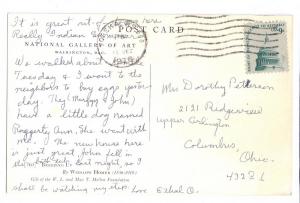 It is great out here
Really Indian Summer
POST CARD
NATIONAL GALLERY OF ART
WASHINGTON, D.C.
We walked about
Tuesday & I went to the
neighbors to buy eggs yester-
day. They (Marge & John)
have a little dog named
Raggerty Ann. She went with
me. The new house here
is just great. John fell in
the last night, so I
By WINSLOW HOMER (1836-1910)
Gift of the W. L. and May T. Mellon Foundation
shall be watching my step. Love Ethel O.
Mrs Dorothy Petterson
2121 Ridgeview
upper Arlington
Columbus,
Ohio.
43221